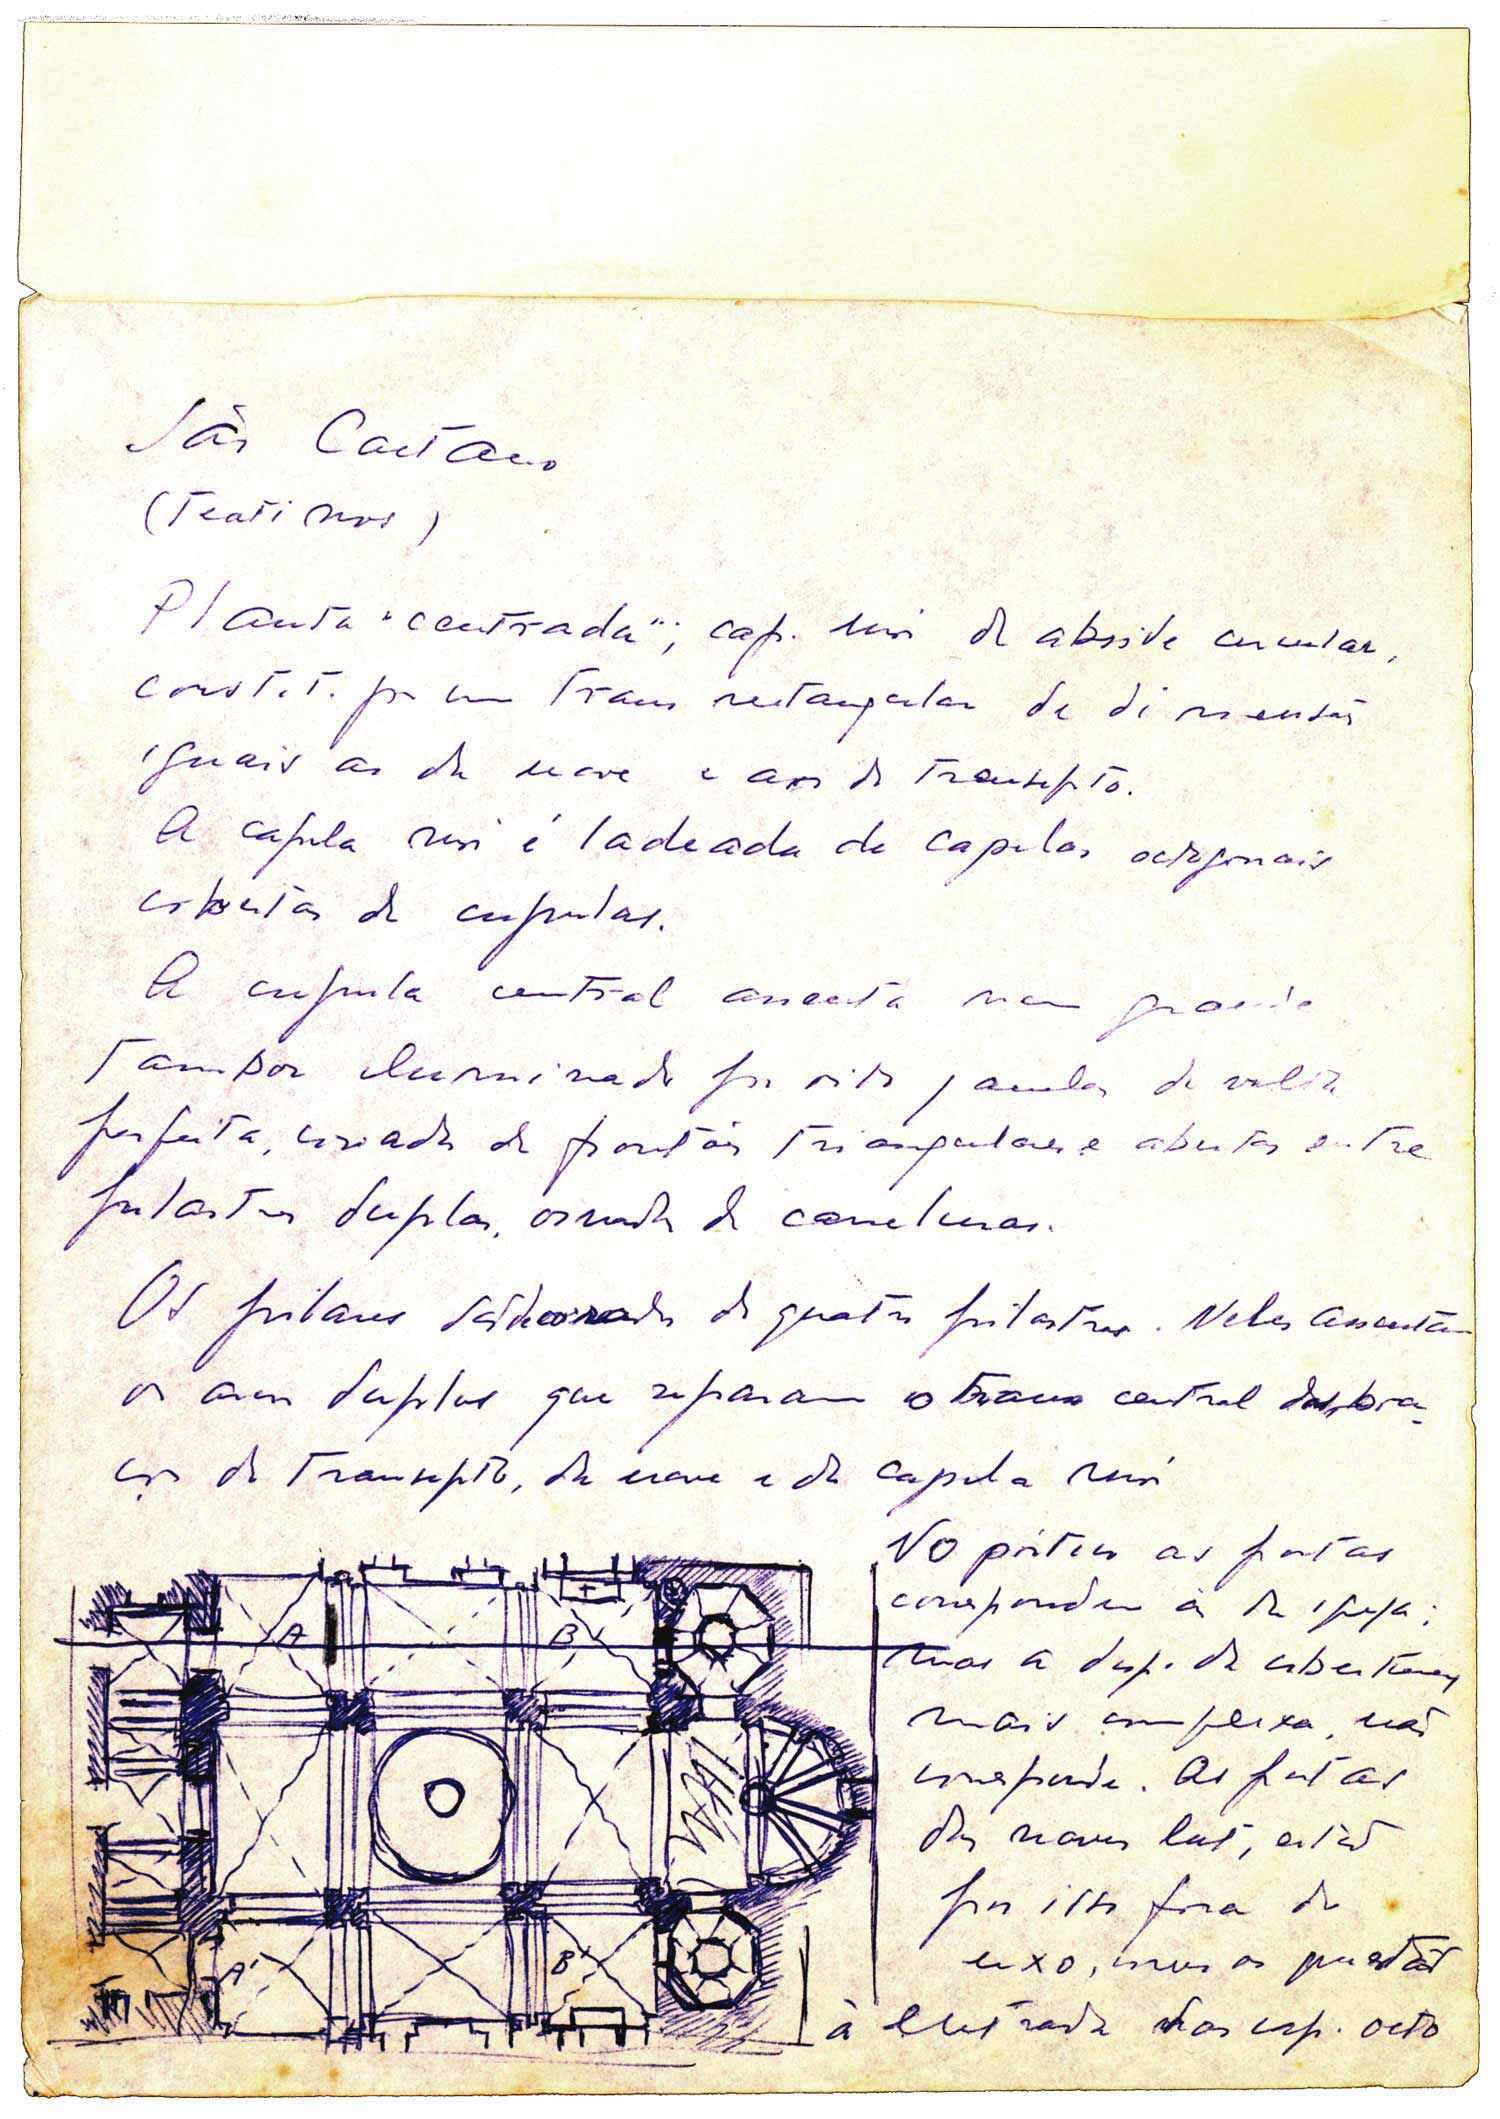 São Caetano
(Teatinos)
Planta "centrada"; cap. mor de abside circular,
constit. por um tramo rectangular de dimensões
iguais as da nave e aos do transepto.
A capela mor é ladeada de capelas octogonais
cobertas de cupulas.
A cupula central assenta num grande
tambor iluminado por oito janelas de volta
perfeita, coroadas de frontões triangulares e abertas entre
pilastras duplas, ornadas de caneluras.
Os pilares são de quatro pilastras. Neles assentam
os arcos duplos que separam o tramo central dos bra-
ços do transepto, da nave e da capela mor
No pórtico as portas
correspondem às da igreja;
mas a disp. da cobertura,
mais complexa, não
corresponde. As portas
das naves lat. estão
por isso fora do
eixo, mas os que estão
à entrada das cap. octo
A
B
A'
B'